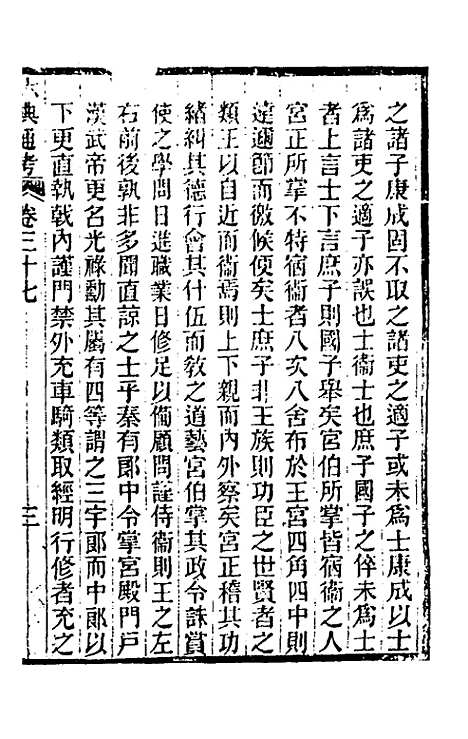 之諸子康成固不取之諸吏之適子或未爲士康成以士
爲諸吏之適子亦誤也士衞士也庶子國子之倅未爲士
者上言士下言庶子則國子舉矣宮伯所掌皆宿衞之人
宮正所掌不特宿衞者八次八舍布於王宮四角四中則
遠邇節而徼候便矣士庶子非王族則功臣之世賢者之
類王以自近而衞焉則上下親而內外察矣宮正稽其功
緒糾其德行會其什伍而敎之道藝宮伯掌其政令誅賞
使之學問日進職業日修足以備顧問詮侍衞則王之左
右前後孰非多聞直諒之士乎秦有郞中令掌宮殿門戶
漢武帝更名光祿勳其屬有四等謂之三字郞而中郞以
下更直執戟內謹門禁外充車騎類取經明行修者充之
六典通考 卷三十七 三